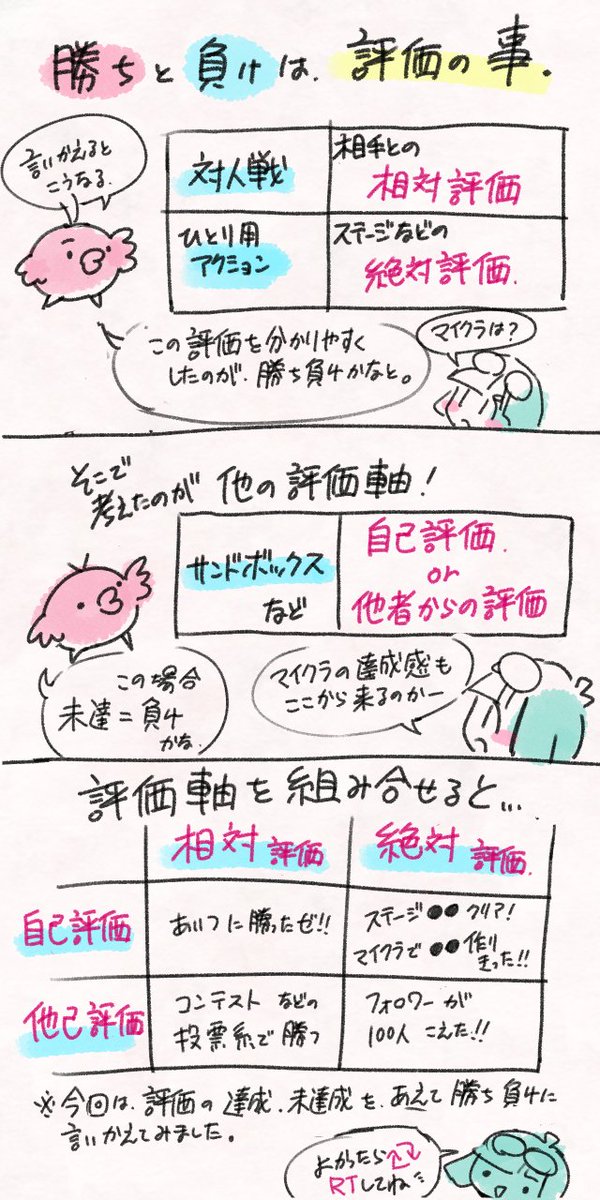 勝ちと負けは、評価の事。
言いかえると
こうなる。
対人戦
相手との
相対評価
ひとり用
アクション
ステージなどの
絶対評価。
この評価を分かりやすく
したのが、勝ち負けかなと。
マイクラは?
そこで
考えたのが 他の評価軸!
サンドボックス
など
自己評価。
or
他者からの評価
この場合
未達=負け
かな。
マイクラの達成感も
ここから来るのかー
評価軸を組み合せると…
相対評価
絶対評価。
自己評価
あいつに勝ったぜ!!
ステージ●●クリア!
マイクラで●●作り
きった!!
他己評価
コンテストなどの
投票系で勝つ
フォロワーが
100人こえた!!
※今回は、評価の達成、未達成を、あえて勝ち負けに
言いかえてみました。
よかったら
RTしてね